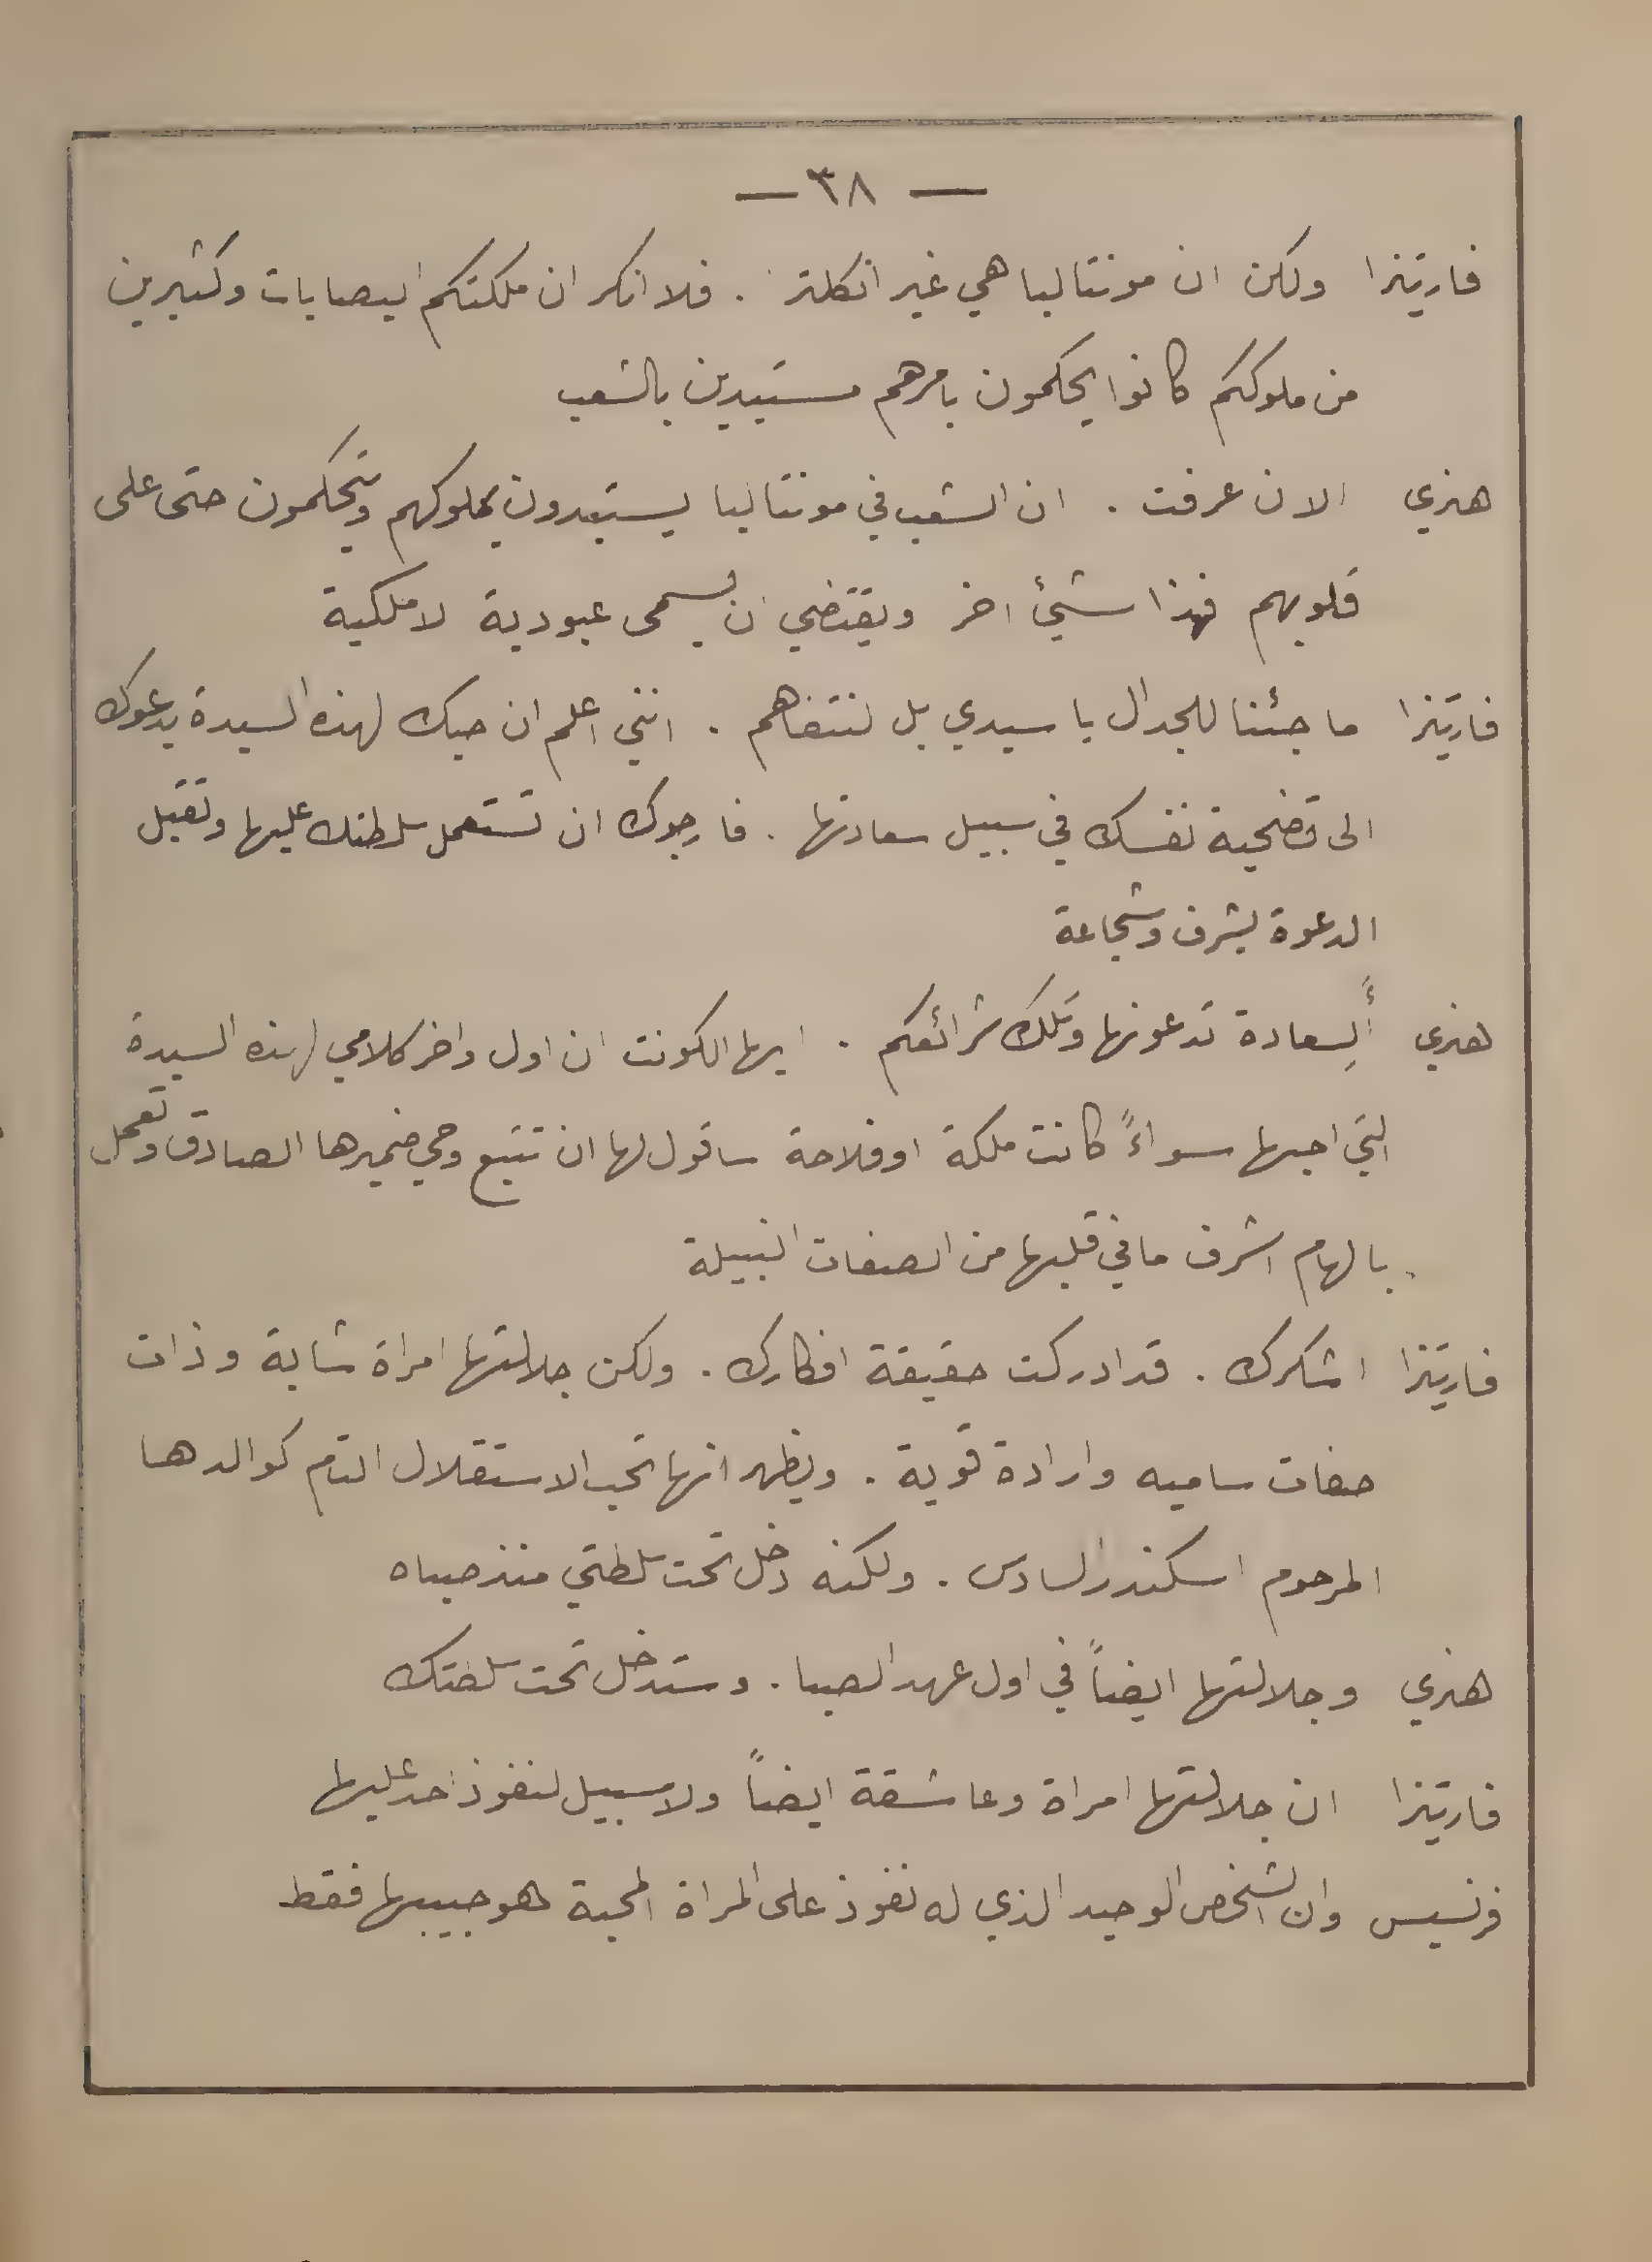 — ٣٨ —
فارتيزا ولكن ان مونتاليا هي غير انكلترا . فلا انكر ان ملكتكم اليصابات وكثيرين
من ملوككم كانوا يحكمون بامرهم مستبدين بالشعب
هنري الان عرفت . ان الشعب في مونتاليا يستبدون بملوكهم ويتحكمون حتى على
قلوبهم فهذا شئ اخر ويقتضي ان يسمى عبودية لا ملكية
فارتيزا ما جئنا للجدال يا سيدي بل لنتفاهم . انني اعلم ان حبك لهذه السيدة يدعوك
الى تضحية نفسك في سبيل سعادتها . فارجوك ان تستعمل سلطتك عليها وتقبل
الدعوة بشرف وشجاعة
هنري ألِسعادة تدعونها وتلك شرائعكم . ايها الكونت ان اول واخر كلامي لهذه السيدة
التي احبها سواءً كانت ملكة او فلاحة ساقول لها ان تتبع وحي ضميرها الصادق وتعمل
بالهام اشرف ما في قلبها من الصفات النبيلة
فارتيزا اشكرك . قد ادركت حقيقة افكارك . ولكن جلالتها امراة شابة وذات
صفات ساميه وارادة قوية . ويظهر انها تحب الاستقلال التام كوالدها
المرحوم اسكندر السادس . ولكنه دخل تحت سلطتي منذ صباه
هنري وجلالتها ايضاً في اول عهد الصبا . وستدخل تحت سلطتك
فارتيزا ان جلالتها امراة وعاشقة ايضاً ولا سبيل لنفوذ احد عليها
فرنسيس وان الشخص الوحيد الذي له نفوذ على المراة المحبة هو حبيبها فقط